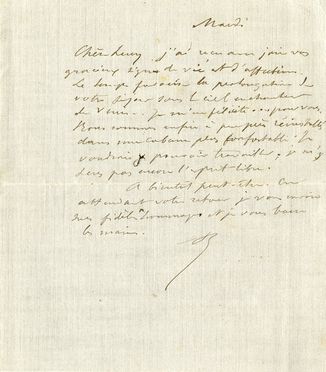 Mardi
Chère Lucy, j'ai reçu avec joie vos
gracieux signes de vie et d'affection.
Le temps favorise la prolongation de
votre séjour sous le ciel enchanteur
de je m'en félicite pour vous.
Nous sommes enfin à peu près réinstallés
dans une cabane plus confortable. Je
voudrais pouvoir travailler, je n'y
pas encore l'esprit libre.
A bientôt peut-être. En
attendant votre retour je vous envoie
mes fidèles hommages et je vous baise
les mains.